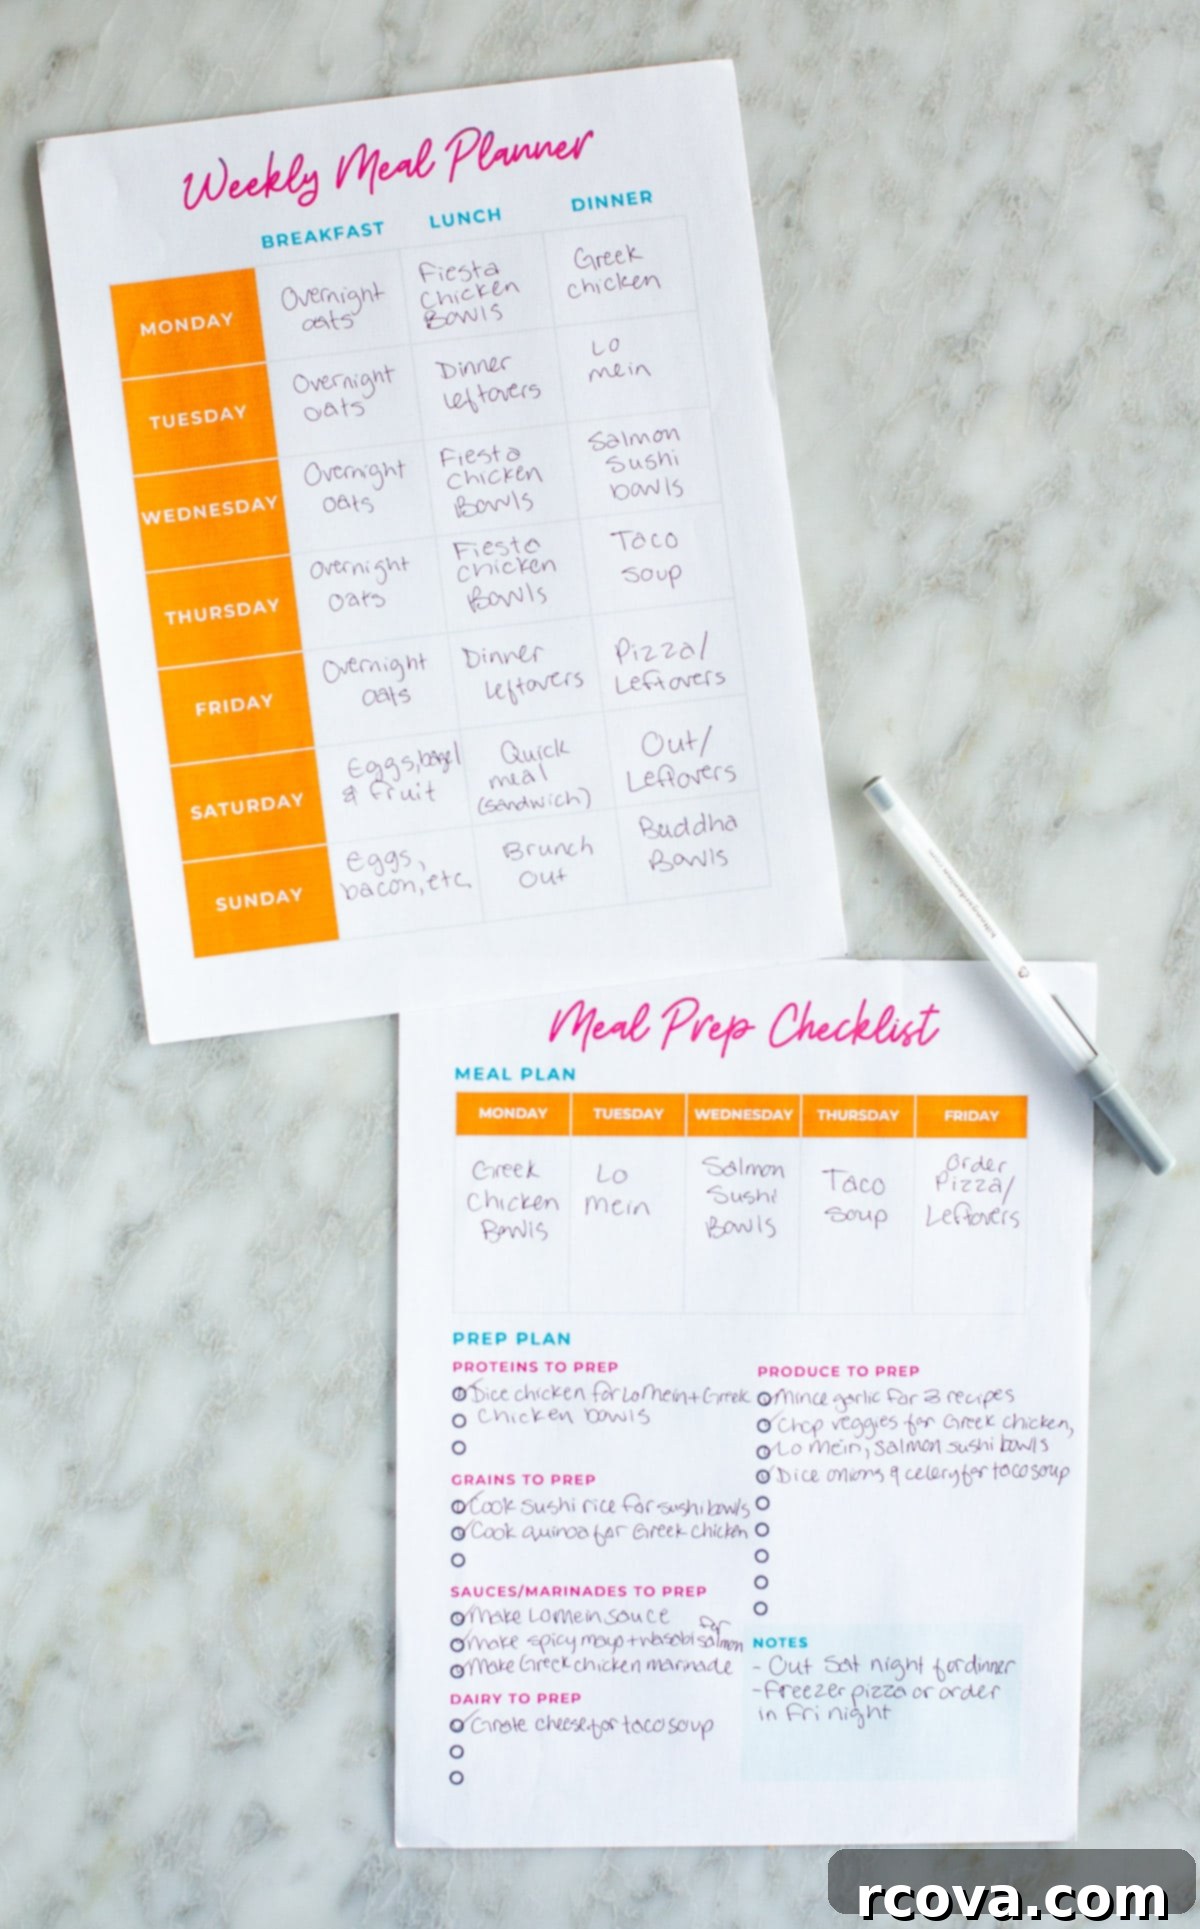 Weekly Meal Planner
BREAKFAST LUNCH DINNER
MONDAY
Overnight
oats
Fiesta
Chicken
Bowls
Greek
chicken
TUESDAY
Overnight
oats
Dinner
leftovers
Lo
mein
WEDNESDAY
Overnight
oats
Fiesta
Chicken
Bowls
Salmon
Sushi
bowls
THURSDAY
Overnight
oats
Fiesta
Chicken
Bowls
Taco
Soup
FRIDAY
Overnight
oats
Dinner
leftovers
Pizza/
Leftovers
SATURDAY
Eggs, bagel
& fruit
Quick
meal
(sandwich)
Out/
Leftovers
SUNDAY
Eggs,
bacon, etc.
Brunch
Out
Buddha
Bowls
Meal Prep Checklist
MEAL PLAN
MONDAY TUESDAY WEDNESDAY THURSDAY FRIDAY
Greek
Chicken
Bowls
Lo
mein
Salmon
Sushi
Bowls
Taco
Soup
Order
Pizza/
Leftovers
PREP PLAN
PROTEINS TO PREP
Dice chicken for Lo mein + Greek
Chicken bowls
GRAINS TO PREP
Cook sushi rice for sushi bowls
Cook quinoa for Greek chicken
SAUCES/MARINADES TO PREP
Make Lo mein sauce
Make spicy mayo + wasabi for salmon
Make Greek chicken marinade
DAIRY TO PREP
Grate cheese for taco soup
PRODUCE TO PREP
Mince garlic for 3 recipes
Chop veggies for Greek chicken,
Lo mein, salmon sushi bowls
Dice onions & celery for taco soup
NOTES
- Out Sat night for dinner
- Freezer pizza or order
in Fri night
rcova.com